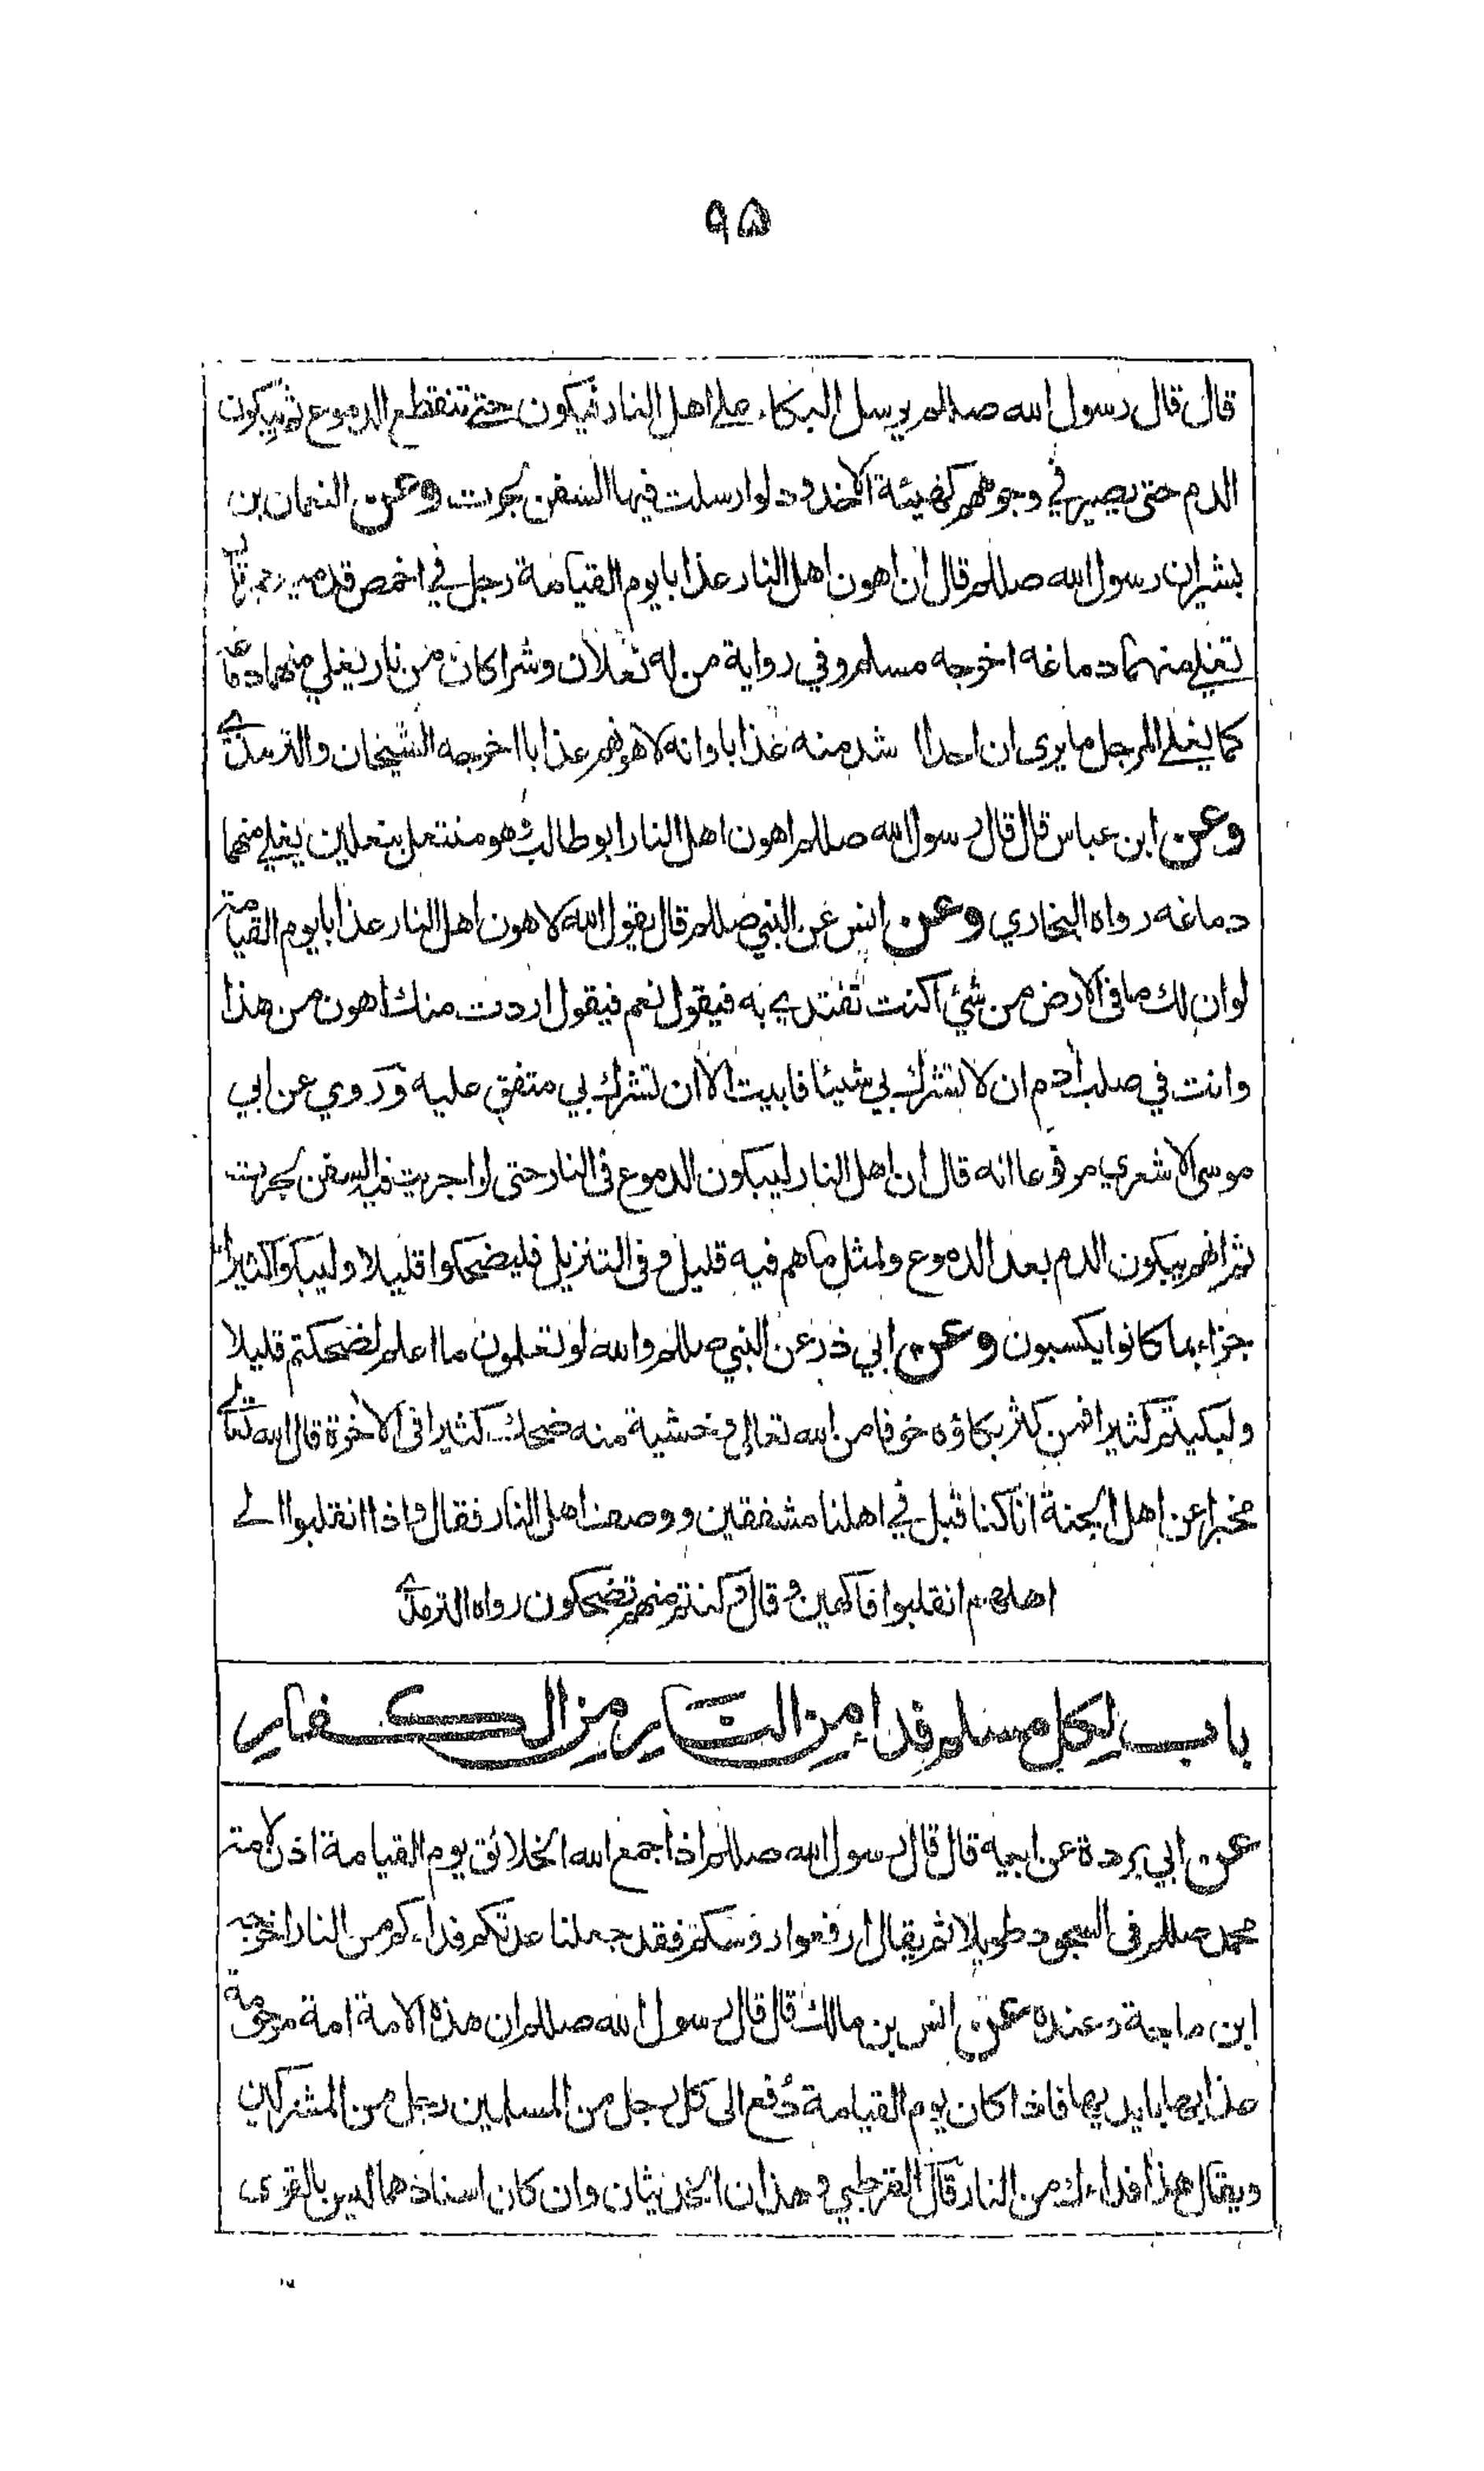 ٩۵
قال قال رسول الله صللم يرسل البكاء على اهل النار فيبكون حتى تنقطع الدموع ثم يبكون
الدم حتى يصير في وجوههم كهيئة الاخدود لو ارسلت فيها السفن لجرت وعن النعمان بن
بشير ان رسول الله صللم قال ان اهون اهل النار عذابا يوم القيامة رجل في اخمص قدميه جمرتان
تغلي منهما دماغه اخرجه مسلم وفي رواية من له نعلان وشراكان من نار يغلي منهما دماغه
كما يغلي المرجل ما يرى ان احدا اشد منه عذابا وانه لاهونهم عذابا اخرجه الشيخان والترمذي
وعن ابن عباس قال قال رسول الله صللم اهون اهل النار ابو طالب وهو منتعل بنعلين يغلي منهما
دماغه رواه البخاري وعن انس عن النبي صللم قال يقول الله لاهون اهل النار عذابا يوم القيامة
لو ان لك ما فى الارض من شئ اكنت تفتدي به فيقول نعم فيقول اردت منك اهون من هذا
وانت في صلب آدم ان لا تشرك بي شيئا فابيت الا ان تشرك بي متفق عليه وروي عن ابي
موسى الاشعري مرفوعا انه قال ان اهل النار ليبكون الدموع فى النار حتى لو اجريت فيه السفن لجرت
ثم انهم يبكون الدم بعد الدموع ولمثل ما هم فيه قليل وفى التنزيل فليضحكوا قليلا وليبكوا كثيرا
جزاء بما كانوا يكسبون وعن ابي ذر عن النبي صللم والله لو تعلمون ما اعلم لضحكتم قليلا
ولبكيتم كثيرا فمن كثر بكاؤه خوفا من الله تعالى وخشية منه ضحك كثيرا فى الآخرة قال الله تعالى
مخبرا عن اهل الجنة انا كنا قبل في اهلنا مشفقين ووصف اهل النار فقال واذا انقلبوا الى
اهلهم انقلبوا فاكهين وقال وكنتم منهم تضحكون رواه الترمذي
باب لكل مسلم فداء من النار من الكفار
عن ابي بردة عن ابيه قال قال رسول الله صللم اذا جمع الله الخلائق يوم القيامة اذن لامة
محمد صللم فى السجود طويلا ثم يقال ارفعوا رؤسكم فقد جعلنا عدتكم فداءكم من النار اخرجه
ابن ماجة وعنده عن انس بن مالك قال قال رسول الله صللم ان هذه الامة امة مرحومة
عذابها بايديها فاذا كان يوم القيامة دُفع الى كل رجل من المسلمين رجل من المشركين
ويقال هذا فداءك من النار قال القرطبي وهذان الحديثان وان كان اسنادهما ليس بالقوى